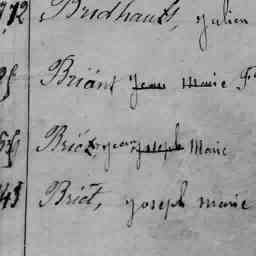 Bridhault, Julien
Briand Jean Marie Fs
Briéz, Jean Joseph Marie
43 Briét, Joseph Marie